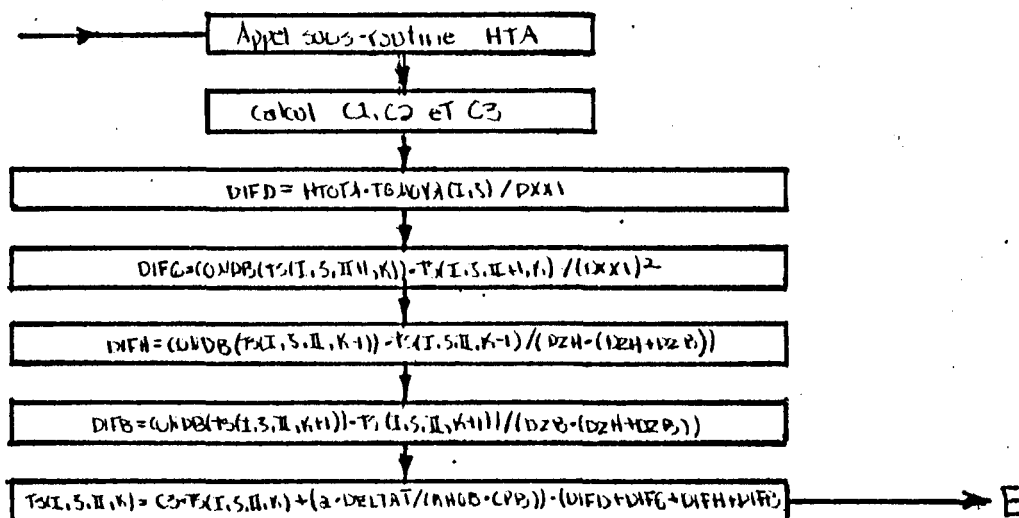 Appel sous-routine HTA
Calcul C1, C2 et C3
DIFD = HTOTA·TGNOYA(I,S) / DXX1
DIFC=CONDB(TS(I,S,II+1,K))·TS(I,S,II+1,K) / (DXX1)²
DIFH=CONDB(TS(I,S,II,K-1))·TS(I,S,II,K-1) / (DZH·(DZH+DZB))
DIFB=CONDB(TS(I,S,II,K+1))·TS(I,S,II,K+1))/(DZB·(DZH+DZB))
TS(I,S,II,K)= C3·TS(I,S,II,K) + (2·DELTAT/(RHOB·CPB))·(DIFD+DIFC+DIFH+DIFB)
E